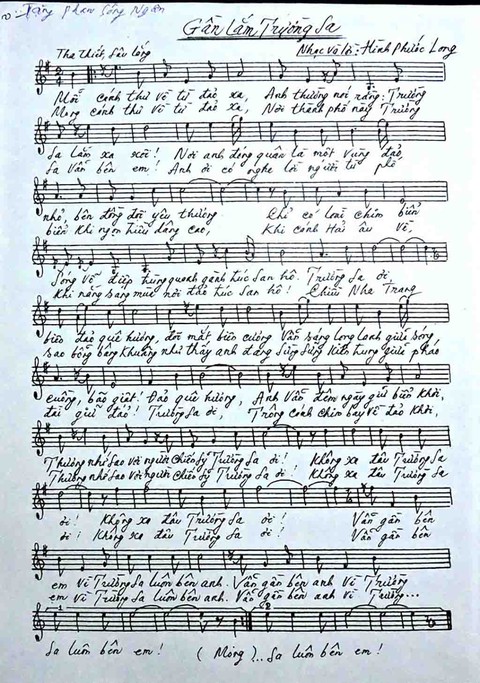 Tặng Phan Sông Ngân
Gần Lắm Trường Sa
Tha thiết, sâu lắng
Nhạc và lời: Hình Phước Long
Mỗi cánh thư về từ đảo xa, Anh thường nói rằng: Trường
Mong cánh thư về từ đảo xa, Nơi thành phố này Trường
Sa lắm xa xôi! Nơi anh đóng quân là một vùng đảo
Sa vẫn bên em! Anh ơi có nghe lời người từ phố
nhỏ, bên đồng đội yêu thương Chỉ có loài chim biển
biển khi ngọn triều dâng cao, Khi cánh Hải âu về,
Sóng vỗ điệp trùng quanh gành trúc San hô. Trường Sa ơi,
Khi nắng sang mùa nơi đảo trúc San hô! Chiều Nha Trang
biển đảo quê hương, đôi mắt biên cương Vẫn sáng long lanh giữa sóng
sao bỗng bâng khuâng như thấy anh đang Sừng Sững hiên ngang giữa pháo
cuồng, bão giật! Đảo quê hương, Anh vẫn đêm ngày giữ biển trời,
đài giữ đảo! Trường Sa ơi, Trông cánh chim bay về đảo khơi,
Thương nhớ Sao với người Chiến Sỹ Trường Sa ơi! Không xa đâu Trường Sa
Thương nhớ Sao với người Chiến Sỹ Trường Sa ơi! Không xa đâu Trường Sa
ơi! Không xa đâu Trường Sa ơi! Vẫn gần bên
ơi! Không xa đâu Trường Sa ơi! Vẫn gần bên
em vì Trường Sa luôn bên anh. Vẫn gần bên anh vì Trường
em vì Trường Sa luôn bên anh. Vẫn gần bên anh vì Trường...
Sa luôn bên em! (Mong)... Sa luôn bên em!